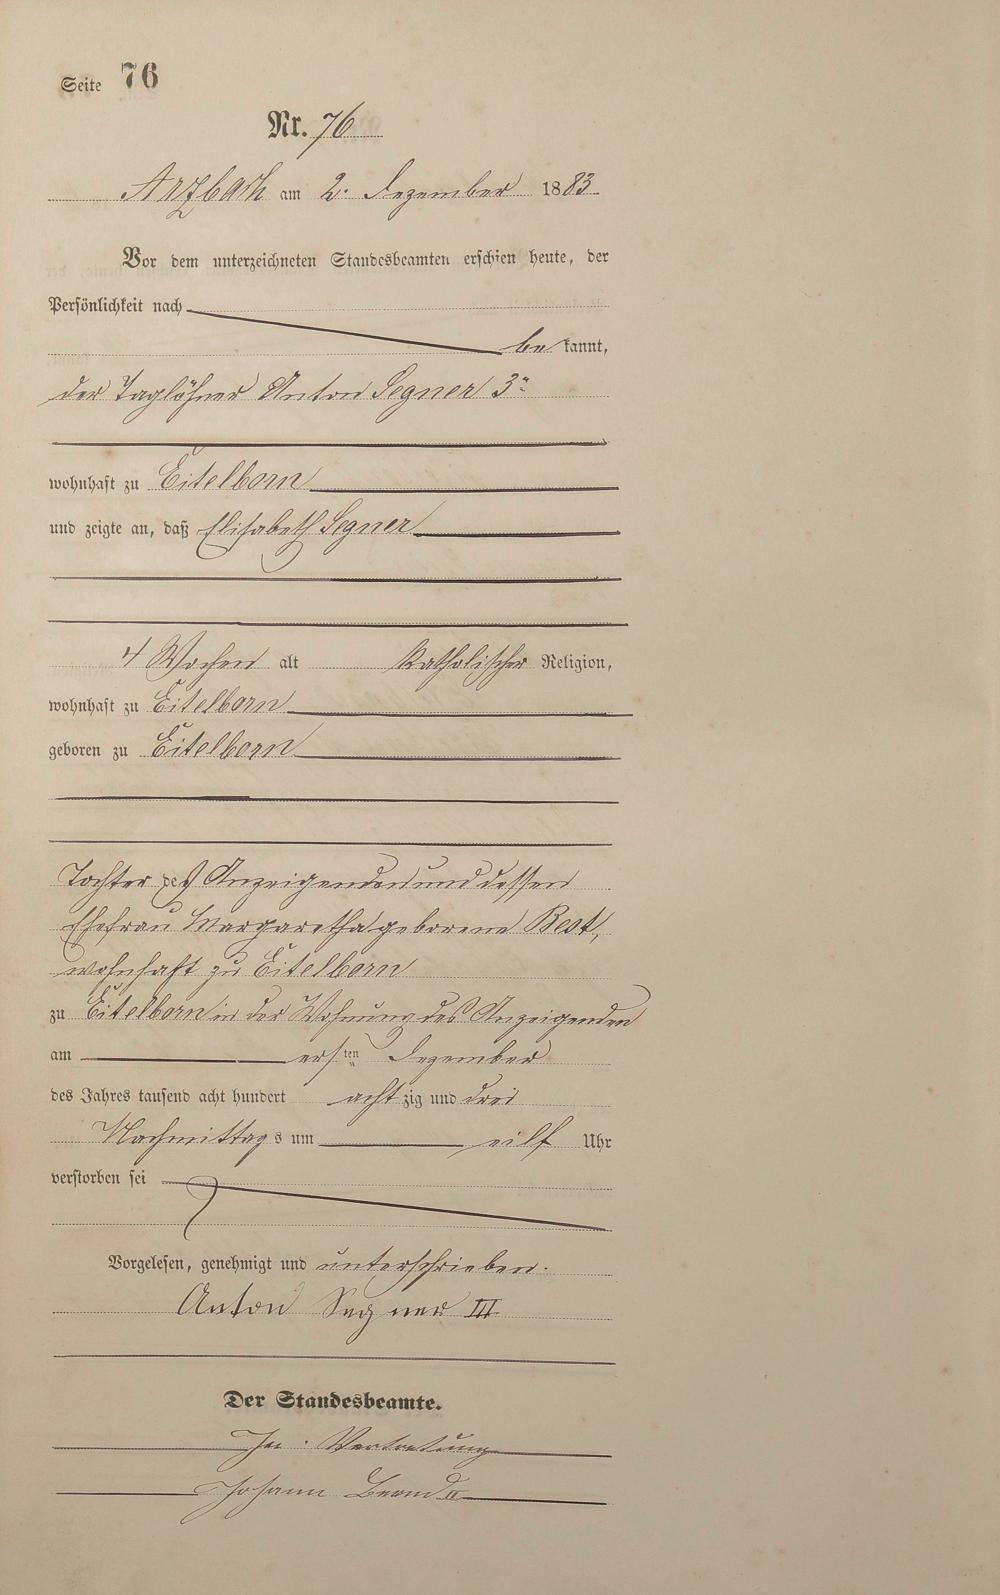 Seite 76
Nr. 76
Arzbach am 2. Dezember 1883
Vor dem unterzeichneten Standesbeamten erschien heute, der
Persönlichkeit nach
bekannt,
der Taglöhner Anton Segner 3r
wohnhaft zu Eitelborn
und zeigte an, daß Elisabeth Segner
4 Wochen alt katholischer Religion,
wohnhaft zu Eitelborn
geboren zu Eitelborn
Tochter des Anzeigenden und dessen
Ehefrau Margaretha geborene Best,
wohnhaft zu Eitelborn
zu Eitelborn in der Wohnung des Anzeigenden
am ersten Dezember
des Jahres tausend acht hundert achtzig und drei
Nachmittags um eilf Uhr
verstorben sei
Vorgelesen, genehmigt und unterschrieben.
Anton Segner III
Der Standesbeamte.
In Vertretung
Johann